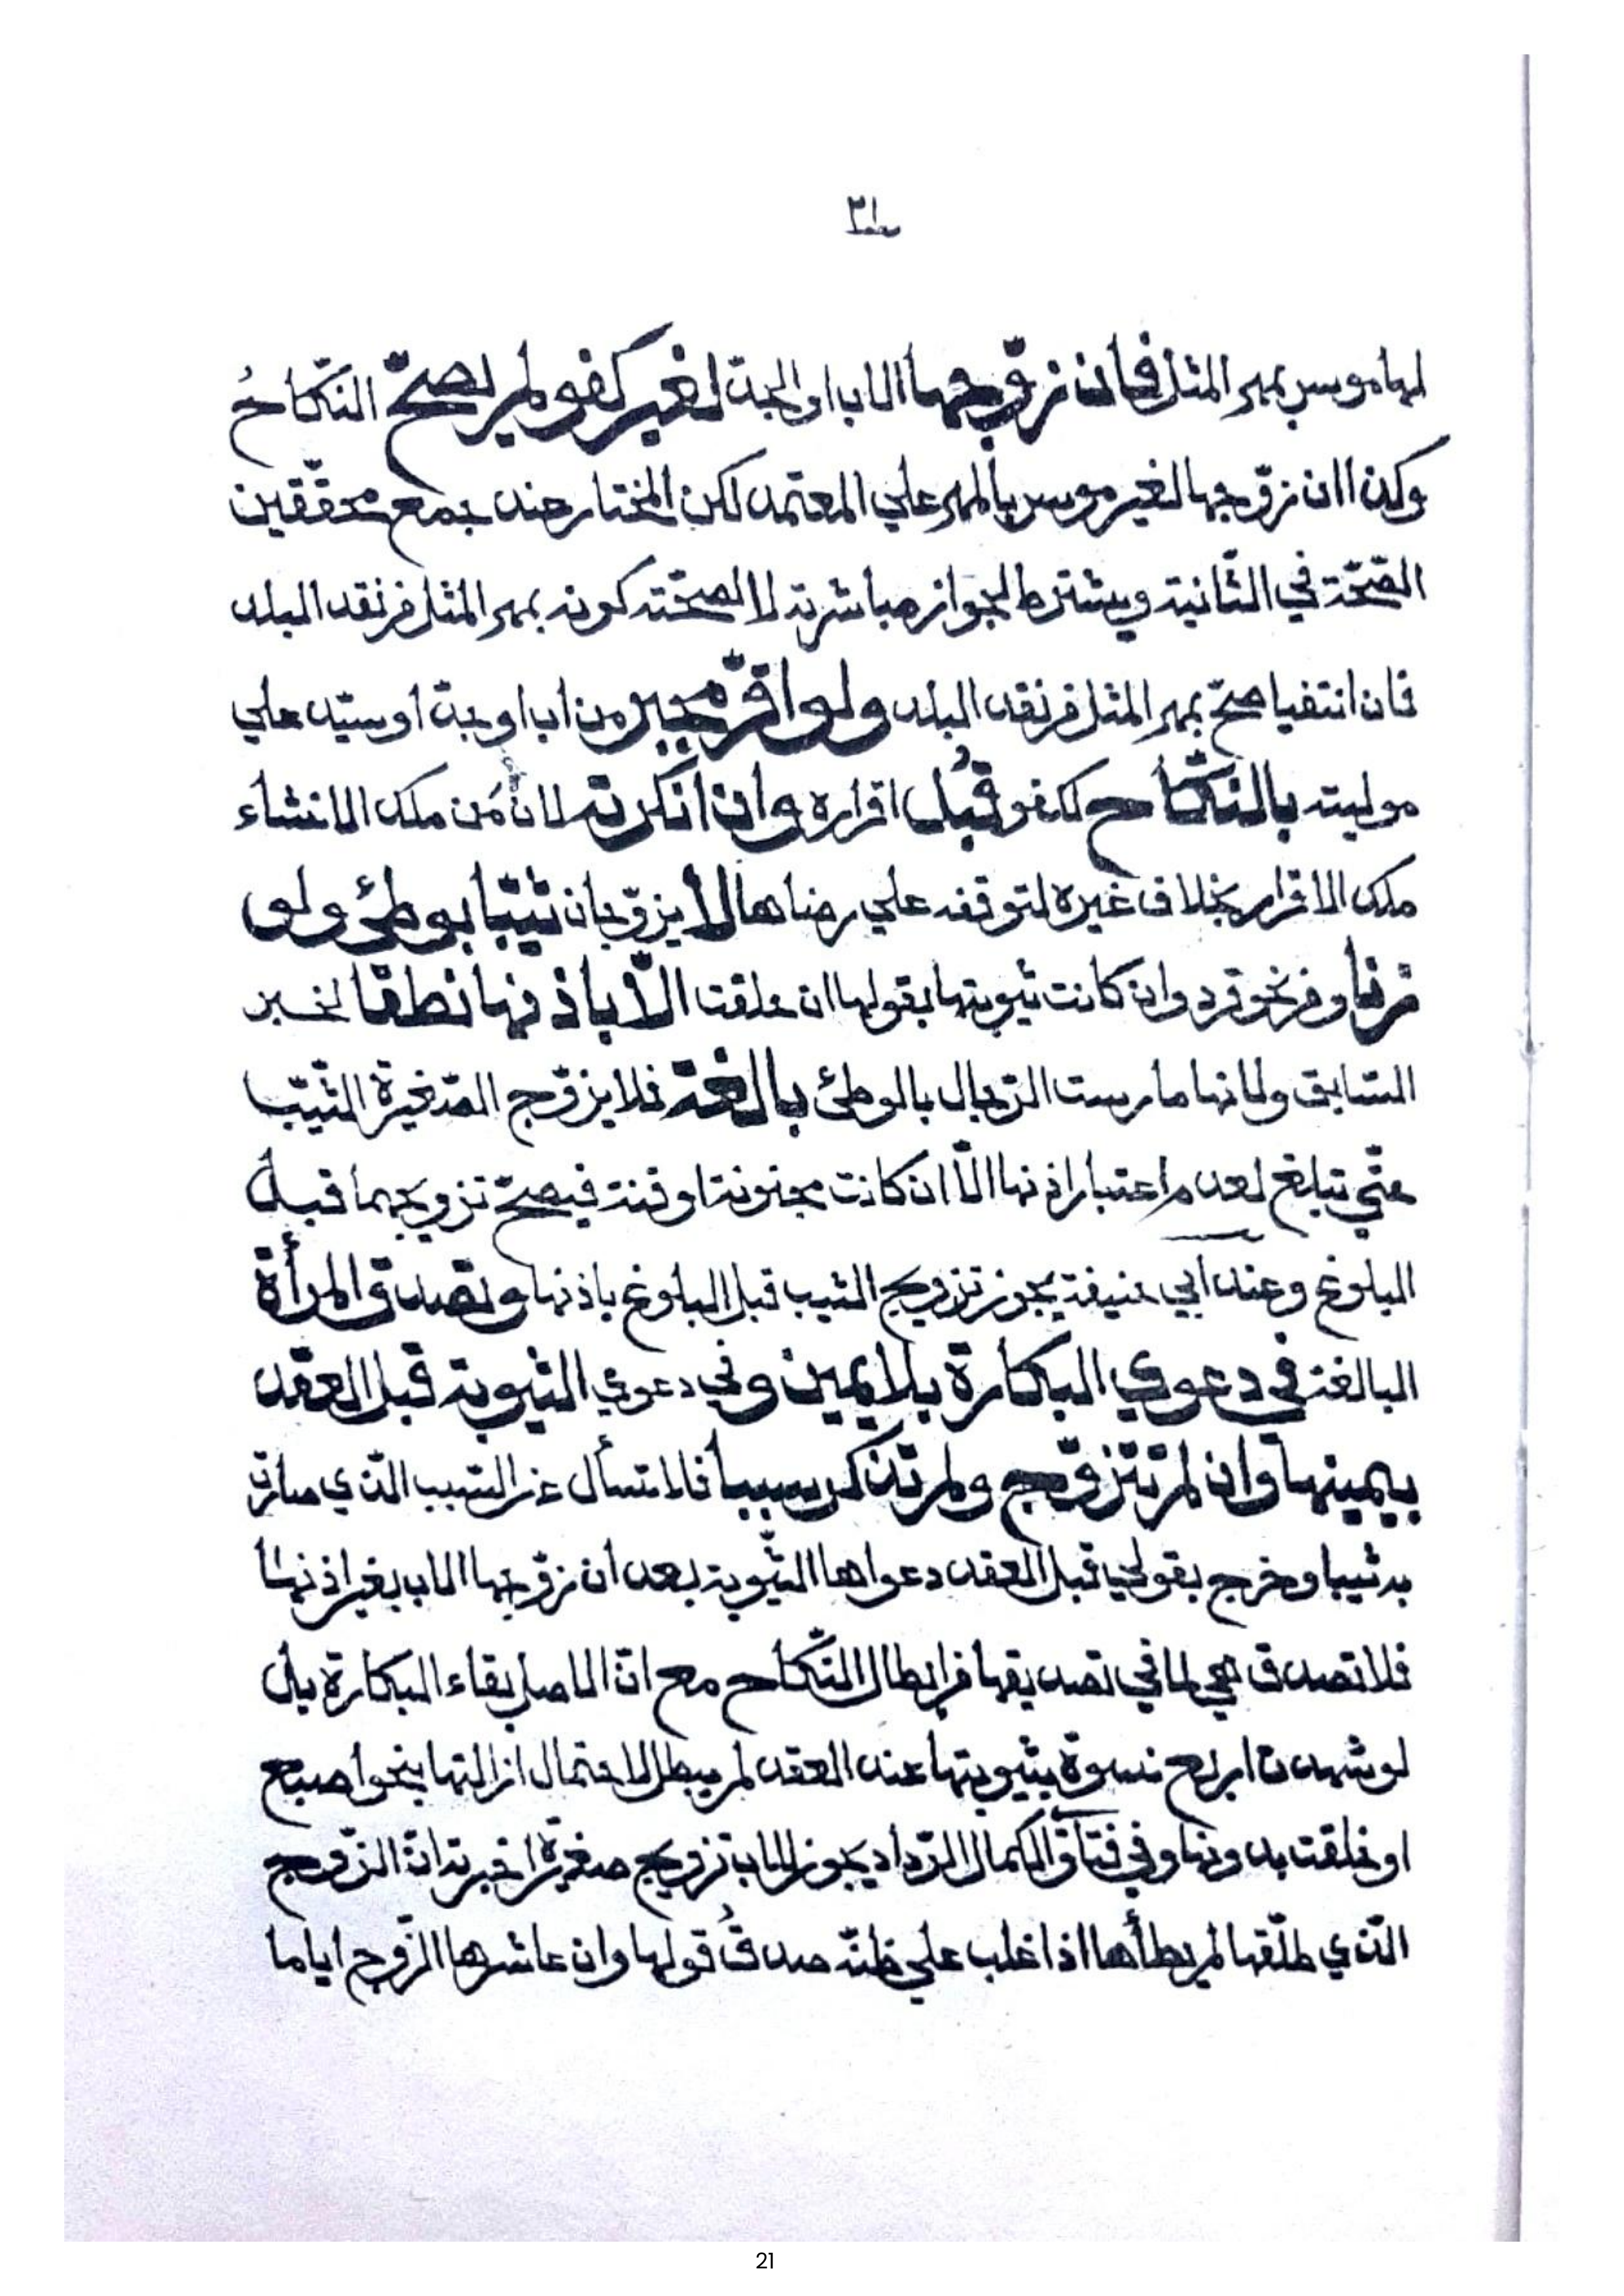 ٢١
لها موسر بمهر المثل فان زوّجها الاب او الجدّ لغير كفو لم يصحّ النّكاحُ
وكذا ان زوّجها لغير موسر بالمهر علي المعتمد لكن المختار عند جمع محقّقين
الصّحّة في الثّانية ويشترط لجواز مباشرته لا لصحّته كونه بمهر المثل من نقد البلد
فان انتفيا صحّ بمهر المثل من نقد البلد ولو اقرّ مجبر من اب او جدّ او سيّد علي
موليته بالنكاح لكفو قُبل اقراره وان انكرته لانّ مَن ملك الانشاء
ملك الاقرار بخلاف غيره لتوقفه علي رضاها لا يزوّجان ثيّبا بوطئ ولو
زنا ومن نحو قرد وان كانت ثيوبتها بقولها ان خلقت الّا باذنها نطقا لخبر
السّابق ولانها مارست الرّجال بالوطئ بالغة فلا يزوّج الصّغيرة الثّيّب
حتّي تبلغ لعدم اعتبار اذنها الّا ان كانت مجنونة او قنة فيصحّ تزويجهما قبل
البلوغ وعند أبي حنيفة يجوز تزويج الثيب قبل البلوغ باذنها وتصدق المرأة
البالغة في دعوي البكارة بلا يمين وفي دعوي الثيوبة قبل العقد
بيمينها وان لم تتزوّج ولم تذكر سببا فلا تسأل عن السّبب الّذي صارت
به ثيبا وخرج بقولي قبل العقد دعواها الثّيوبة بعد ان زوّجها الاب بغير اذنها
فلا تصدق هي لما في تصديقها من ابطال النّكاح مع انّ الاصل بقاء البكارة بل
لو شهدت اربع نسوة بثيوبتها عند العقد لم يبطل لاحتمال ازالتها بنحو اصبع
او خلقت بدونها وفي فتاوّ الكمال الرّداد يجوز للاب تزويج صغيرة اخبرته انّ الزّوج
الّذي طلّقها لم يطأها اذا غلب علي ظنّه صدقُ قولها وان عاشرها الزّوج اياما
21